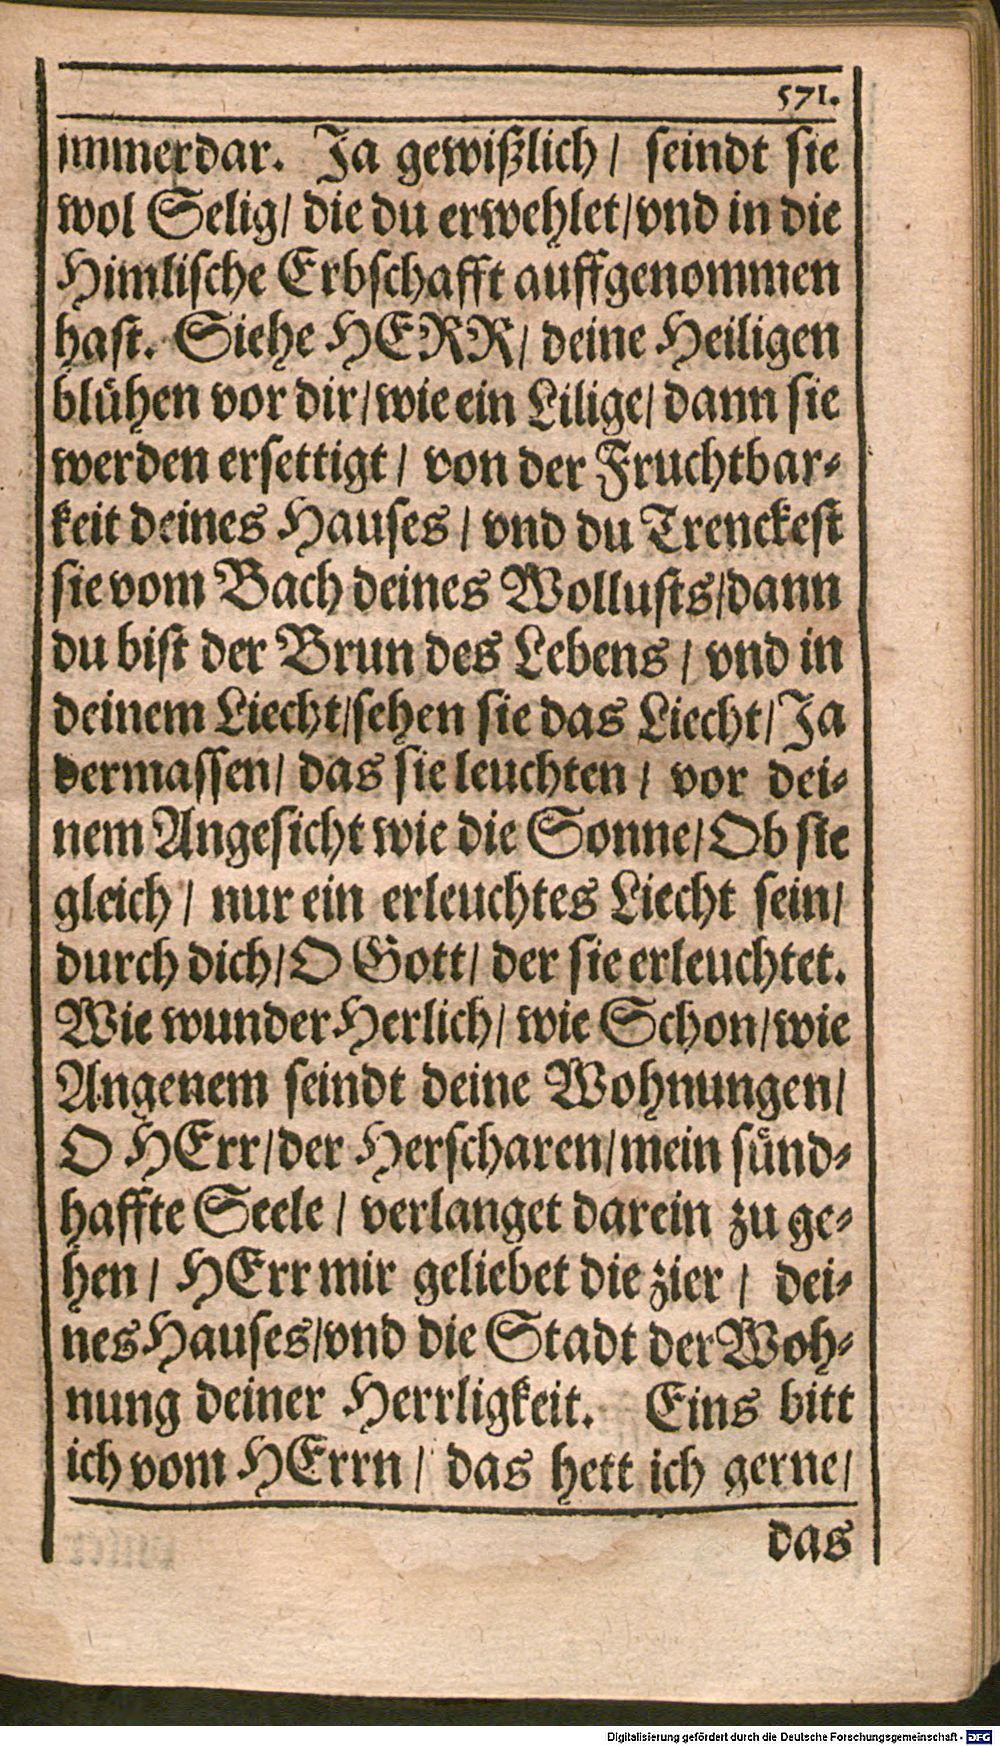 571.
immerdar. Ja gewißlich/ seindt sie
wol Selig/ die du erwehlet/vnd in die
Himlische Erbschafft auffgenommen
hast. Siehe HERR/ deine Heiligen
blühen vor dir/wie ein Lilige/ dann sie
werden ersettigt/ von der Fruchtbar-
keit deines Hauses/ vnd du Trenckest
sie vom Bach deines Wollusts/dann
du bist der Brun des Lebens/ vnd in
deinem Liecht/sehen sie das Liecht/ Ja
dermassen/ das sie leuchten/ vor dei-
nem Angesicht wie die Sonne/ Ob sie
gleich/ nur ein erleuchtes Liecht sein/
durch dich/ O Gott/ der sie erleuchtet.
Wie wunder Herlich/ wie Schon/wie
Angenem seindt deine Wohnungen/
O HErr/der Herscharen/mein sünd-
haffte Seele/ verlanget darein zu ge-
hen/ HErr mir geliebet die zier/ dei-
nes Hauses/vnd die Stadt der Woh-
nung deiner Herrligkeit. Eins bitt
ich vom HErrn/ das hett ich gerne/
das
Digitalisierung gefördert durch die Deutsche Forschungsgemeinschaft - DFG